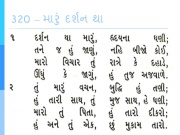 320 – મારું દર્શન થા
૧ દર્શન થા મારું, હૃદયના ધણી;
તને જ હું જાણું, નહિ બીજો કોઈ,
મારો વિચાર તું રાત્રે કે દહાડે,
ઊંઘું કે જાણું, હું તુજ અજવાળે.
૨ તું મારું વચન, બુદ્ધિ હું તણી;
હું તારી સાથ, તું મુજ સાથ, હે ધણી;
તું મારો પિતા, હું તારો દીકરો,
હું અને તું એક, છું મુકામ તારો.